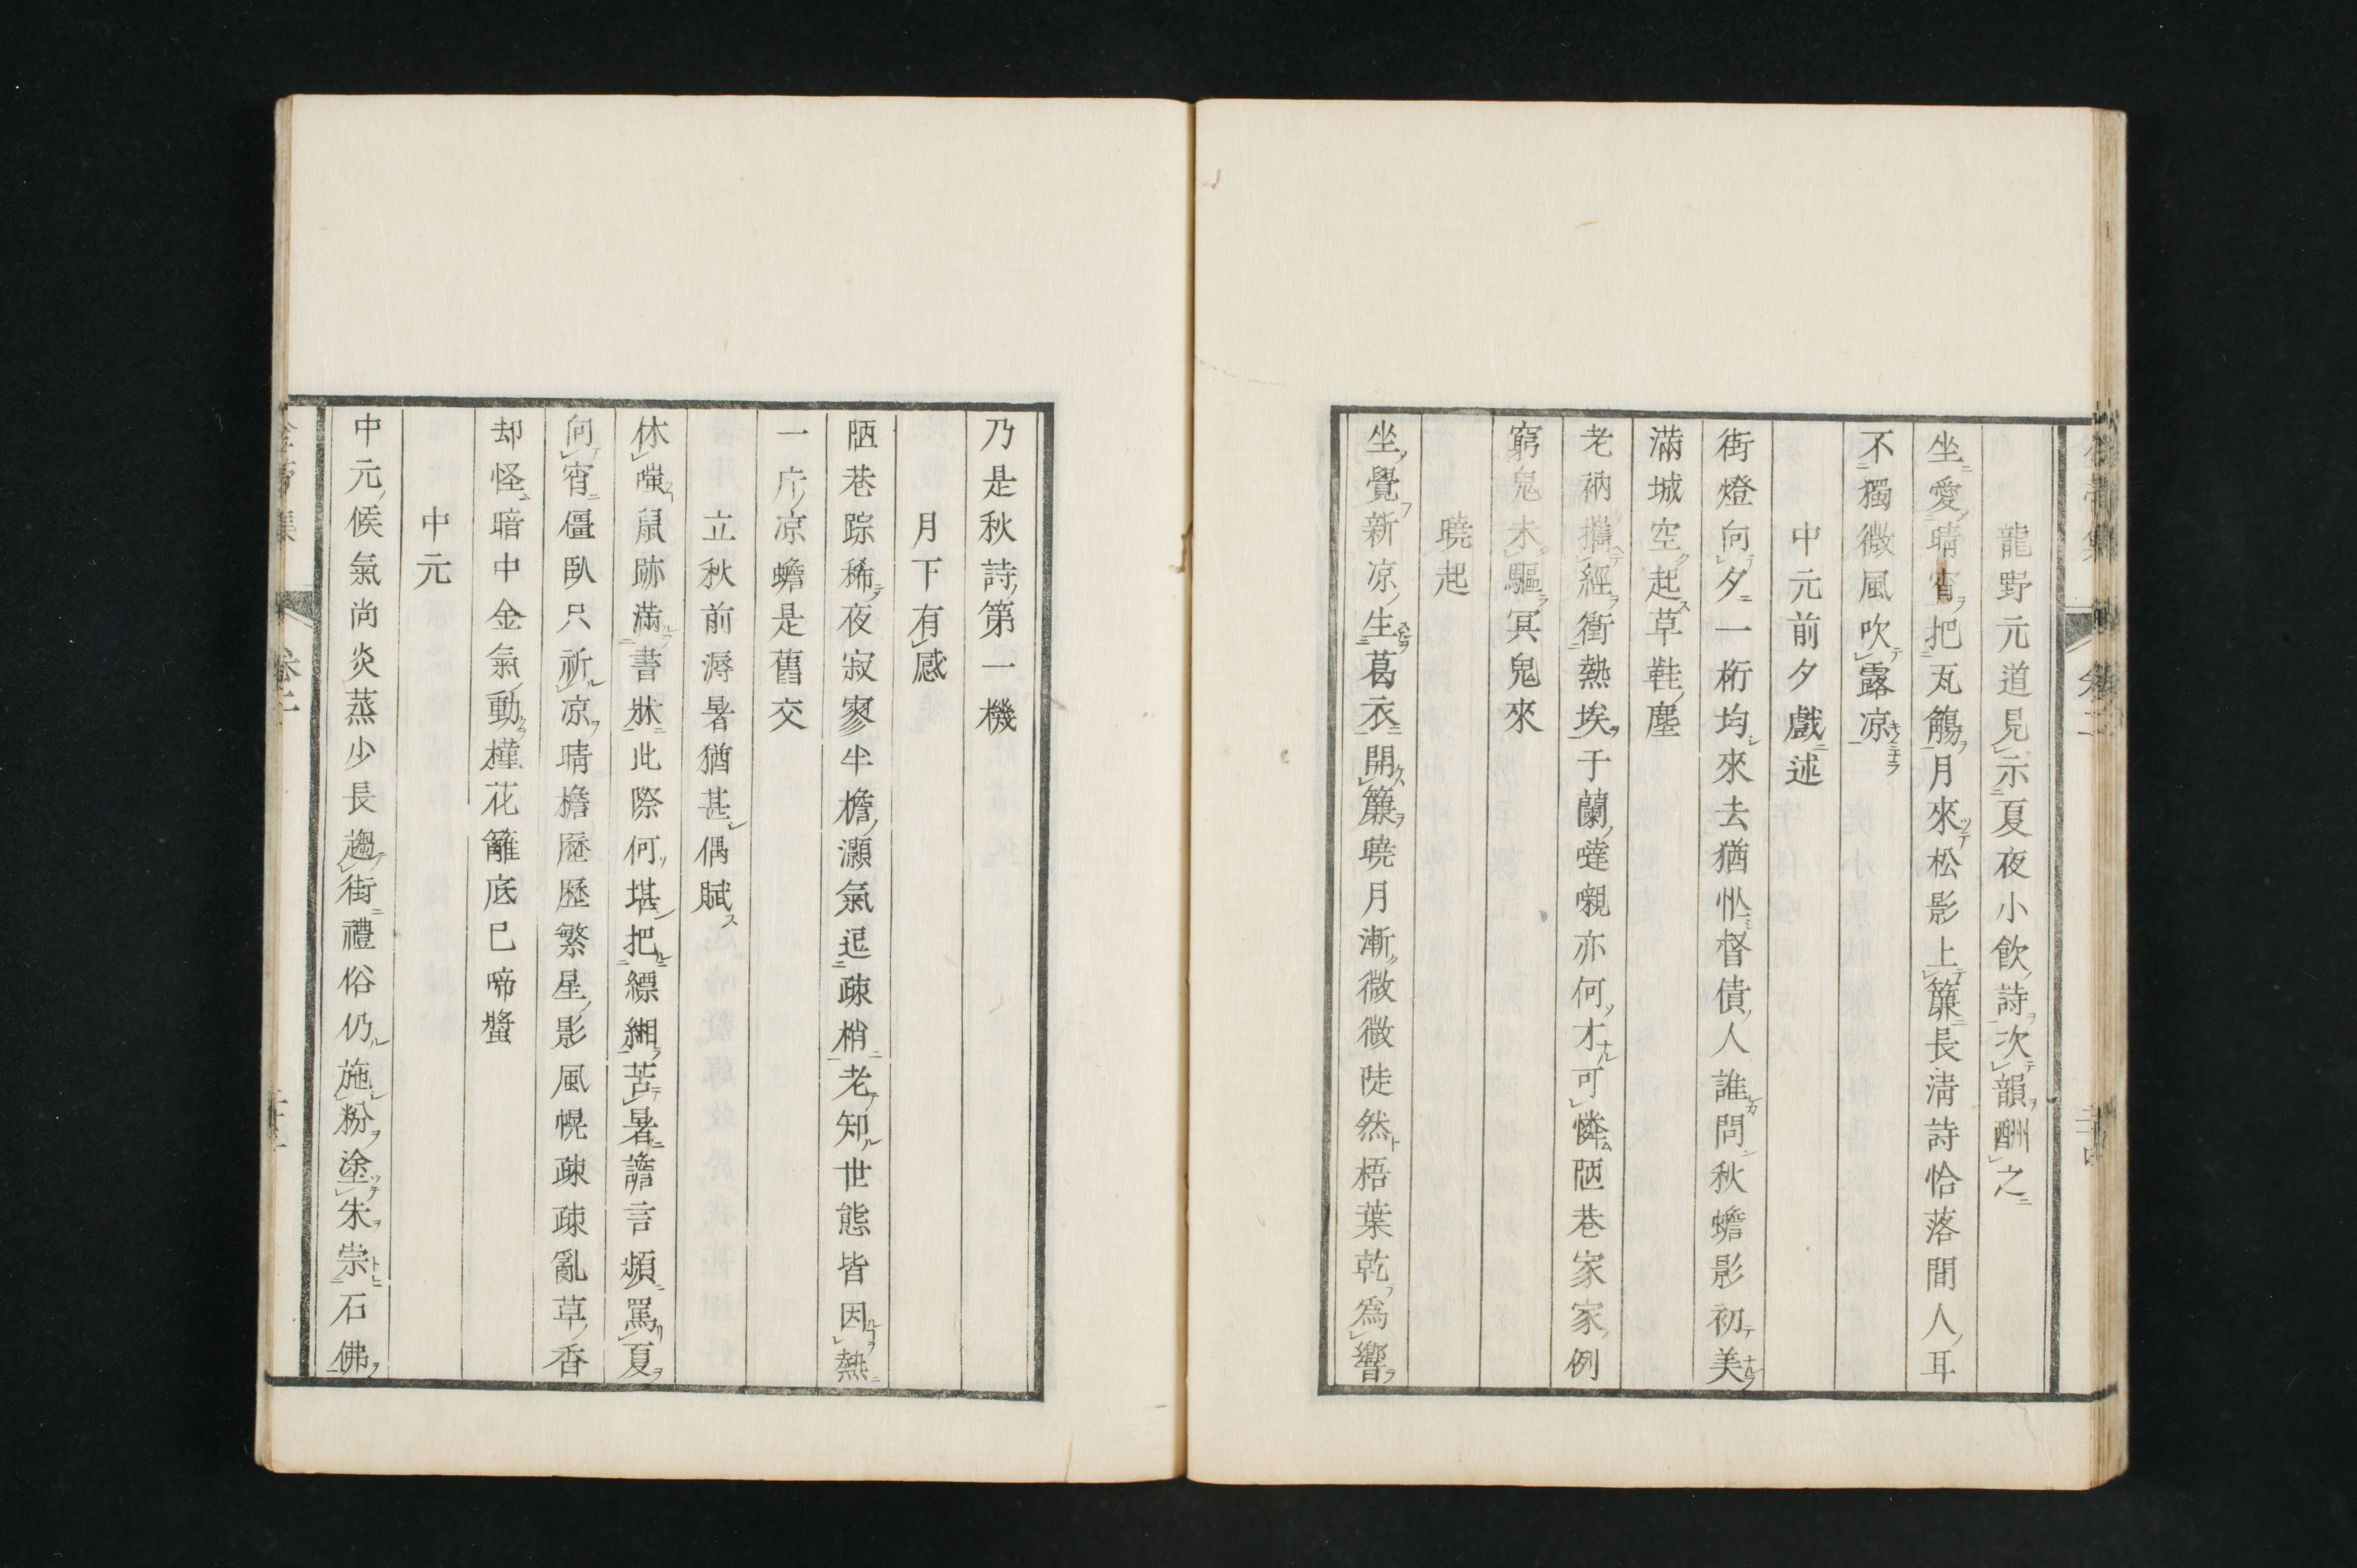 龍野元道見示夏夜小飮詩次韻酬之
坐愛晴宵把瓦觴月來松影上簾長淸詩恰落間人耳
不獨微風吹露凉
中元前夕戲述
街燈向夕一桁均來去猶忪督債人誰問秋蟾影初美
滿城空起草鞋塵
老衲攜經衝熱埃于蘭噠嚫亦何才可憐陋巷家家例
窮鬼未驅冥鬼來
曉起
坐覺新凉生葛衣開簾曉月漸微微陡然梧葉乾爲響
乃是秋詩第一機
月下有感
陋巷踪稀夜寂寥半檐灝氣逗疎梢老知世態皆因熱
一片凉蟾是舊交
立秋前溽暑猶甚偶賦
休嗤鼠跡滿書牀此際何堪把縹緗苦暑譫言頻罵夏
向宵僵臥只祈凉晴檐歷歷繁星影風幌疎疎亂草香
却怪暗中金氣動槿花籬底已啼螿
中元
中元候氣尚炎蒸少長趨街禮俗仍施粉塗朱崇石佛